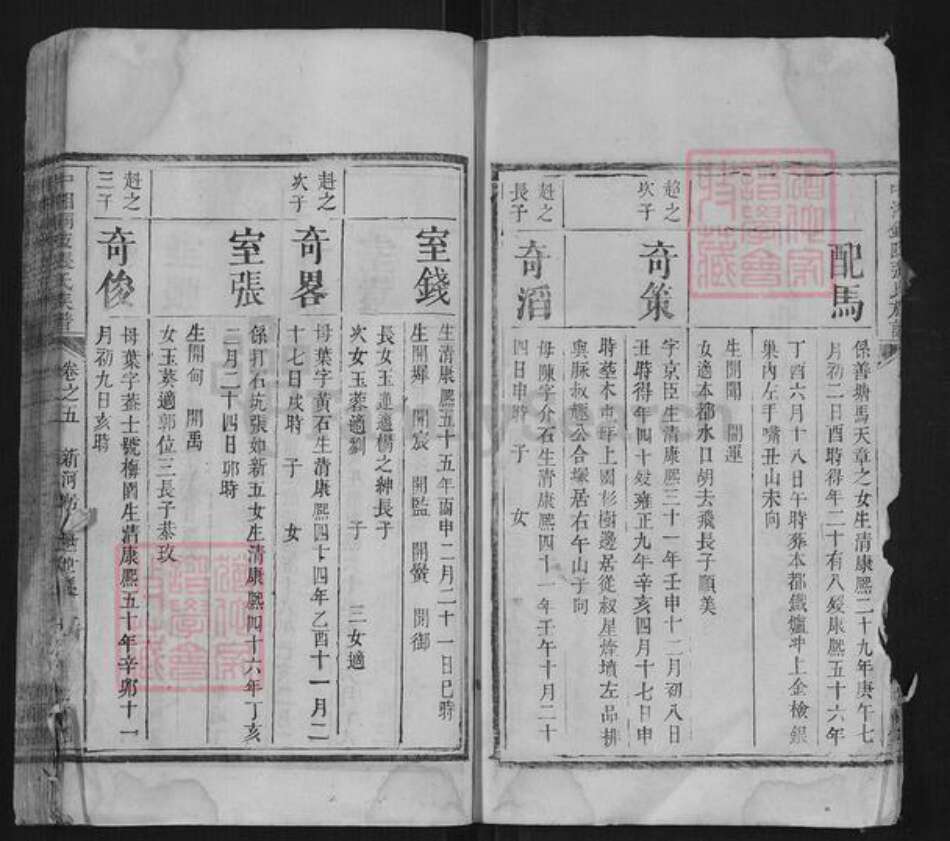 配馬
係善塘馬天章之女生清康熙二十九年庚午七
月初二日酉時得年二十有八歿康熙五十六年
丁酉六月十八日午時葬本都鐵爐冲上金檢銀
巢內左手嘴丑山未向
生開閣 開運
女適本都水口胡去飛長子順美
趋之
次子
奇策
字京臣生清康熙三十一年壬申十二月初八日
丑時得年四十歿雍正九年辛亥四月十七日申
時葬木市坪上園杉樹邊居從叔星烽墳左品排
與脈叔 公合塚居右午山子向
赳之
長子
奇滔
母陳字介石生清康熙四十一年壬午十月二十
四日申時 子 女
室錢
生清康熙五十五年丙申二月二十一日巳時
生開墀 開宸 開監 開鑾 開御
長女玉蓮適楊之紳長子
次女玉蓉適劉 子 三女適
赳之
次子
奇畧
母葉字黃石生清康熙四十四年乙酉十一月二
十七日戌時 子 女
室張
係打石坑張如新五女生清康熙四十六年丁亥
二月二十四日卯時
生開甸 開禹
女玉葵適郭位三長子泰玫
赳之
三子
奇俊
母葉字藎士號梅園生清康熙五十年辛卯十一
月初九日亥時
中湘 張氏族譜 卷之五 新河房